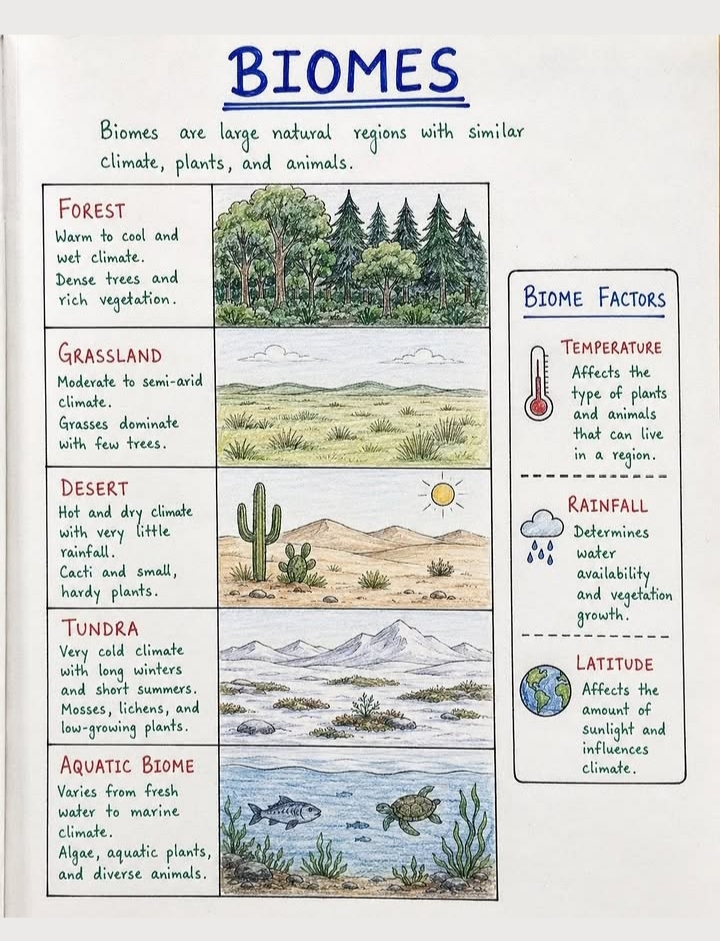 BIOMES
Biomes are large natural regions with similar
climate, plants, and animals.
FOREST
Warm to cool and
wet climate.
Dense trees and
rich vegetation.
GRASSLAND
Moderate to semi-arid
climate.
Grasses dominate
with few trees.
DESERT
Hot and dry climate
with very little
rainfall.
Cacti and small,
hardy plants.
TUNDRA
Very cold climate
with long winters
and short summers.
Mosses, lichens, and
low-growing plants.
AQUATIC BIOME
Varies from fresh
water to marine
climate.
Algae, aquatic plants,
and diverse animals.
BIOME FACTORS
TEMPERATURE
Affects the
type of plants
and animals
that can live
in a region.
RAINFALL
Determines
water
availability
and vegetation
growth.
LATITUDE
Affects the
amount of
sunlight and
influences
climate.